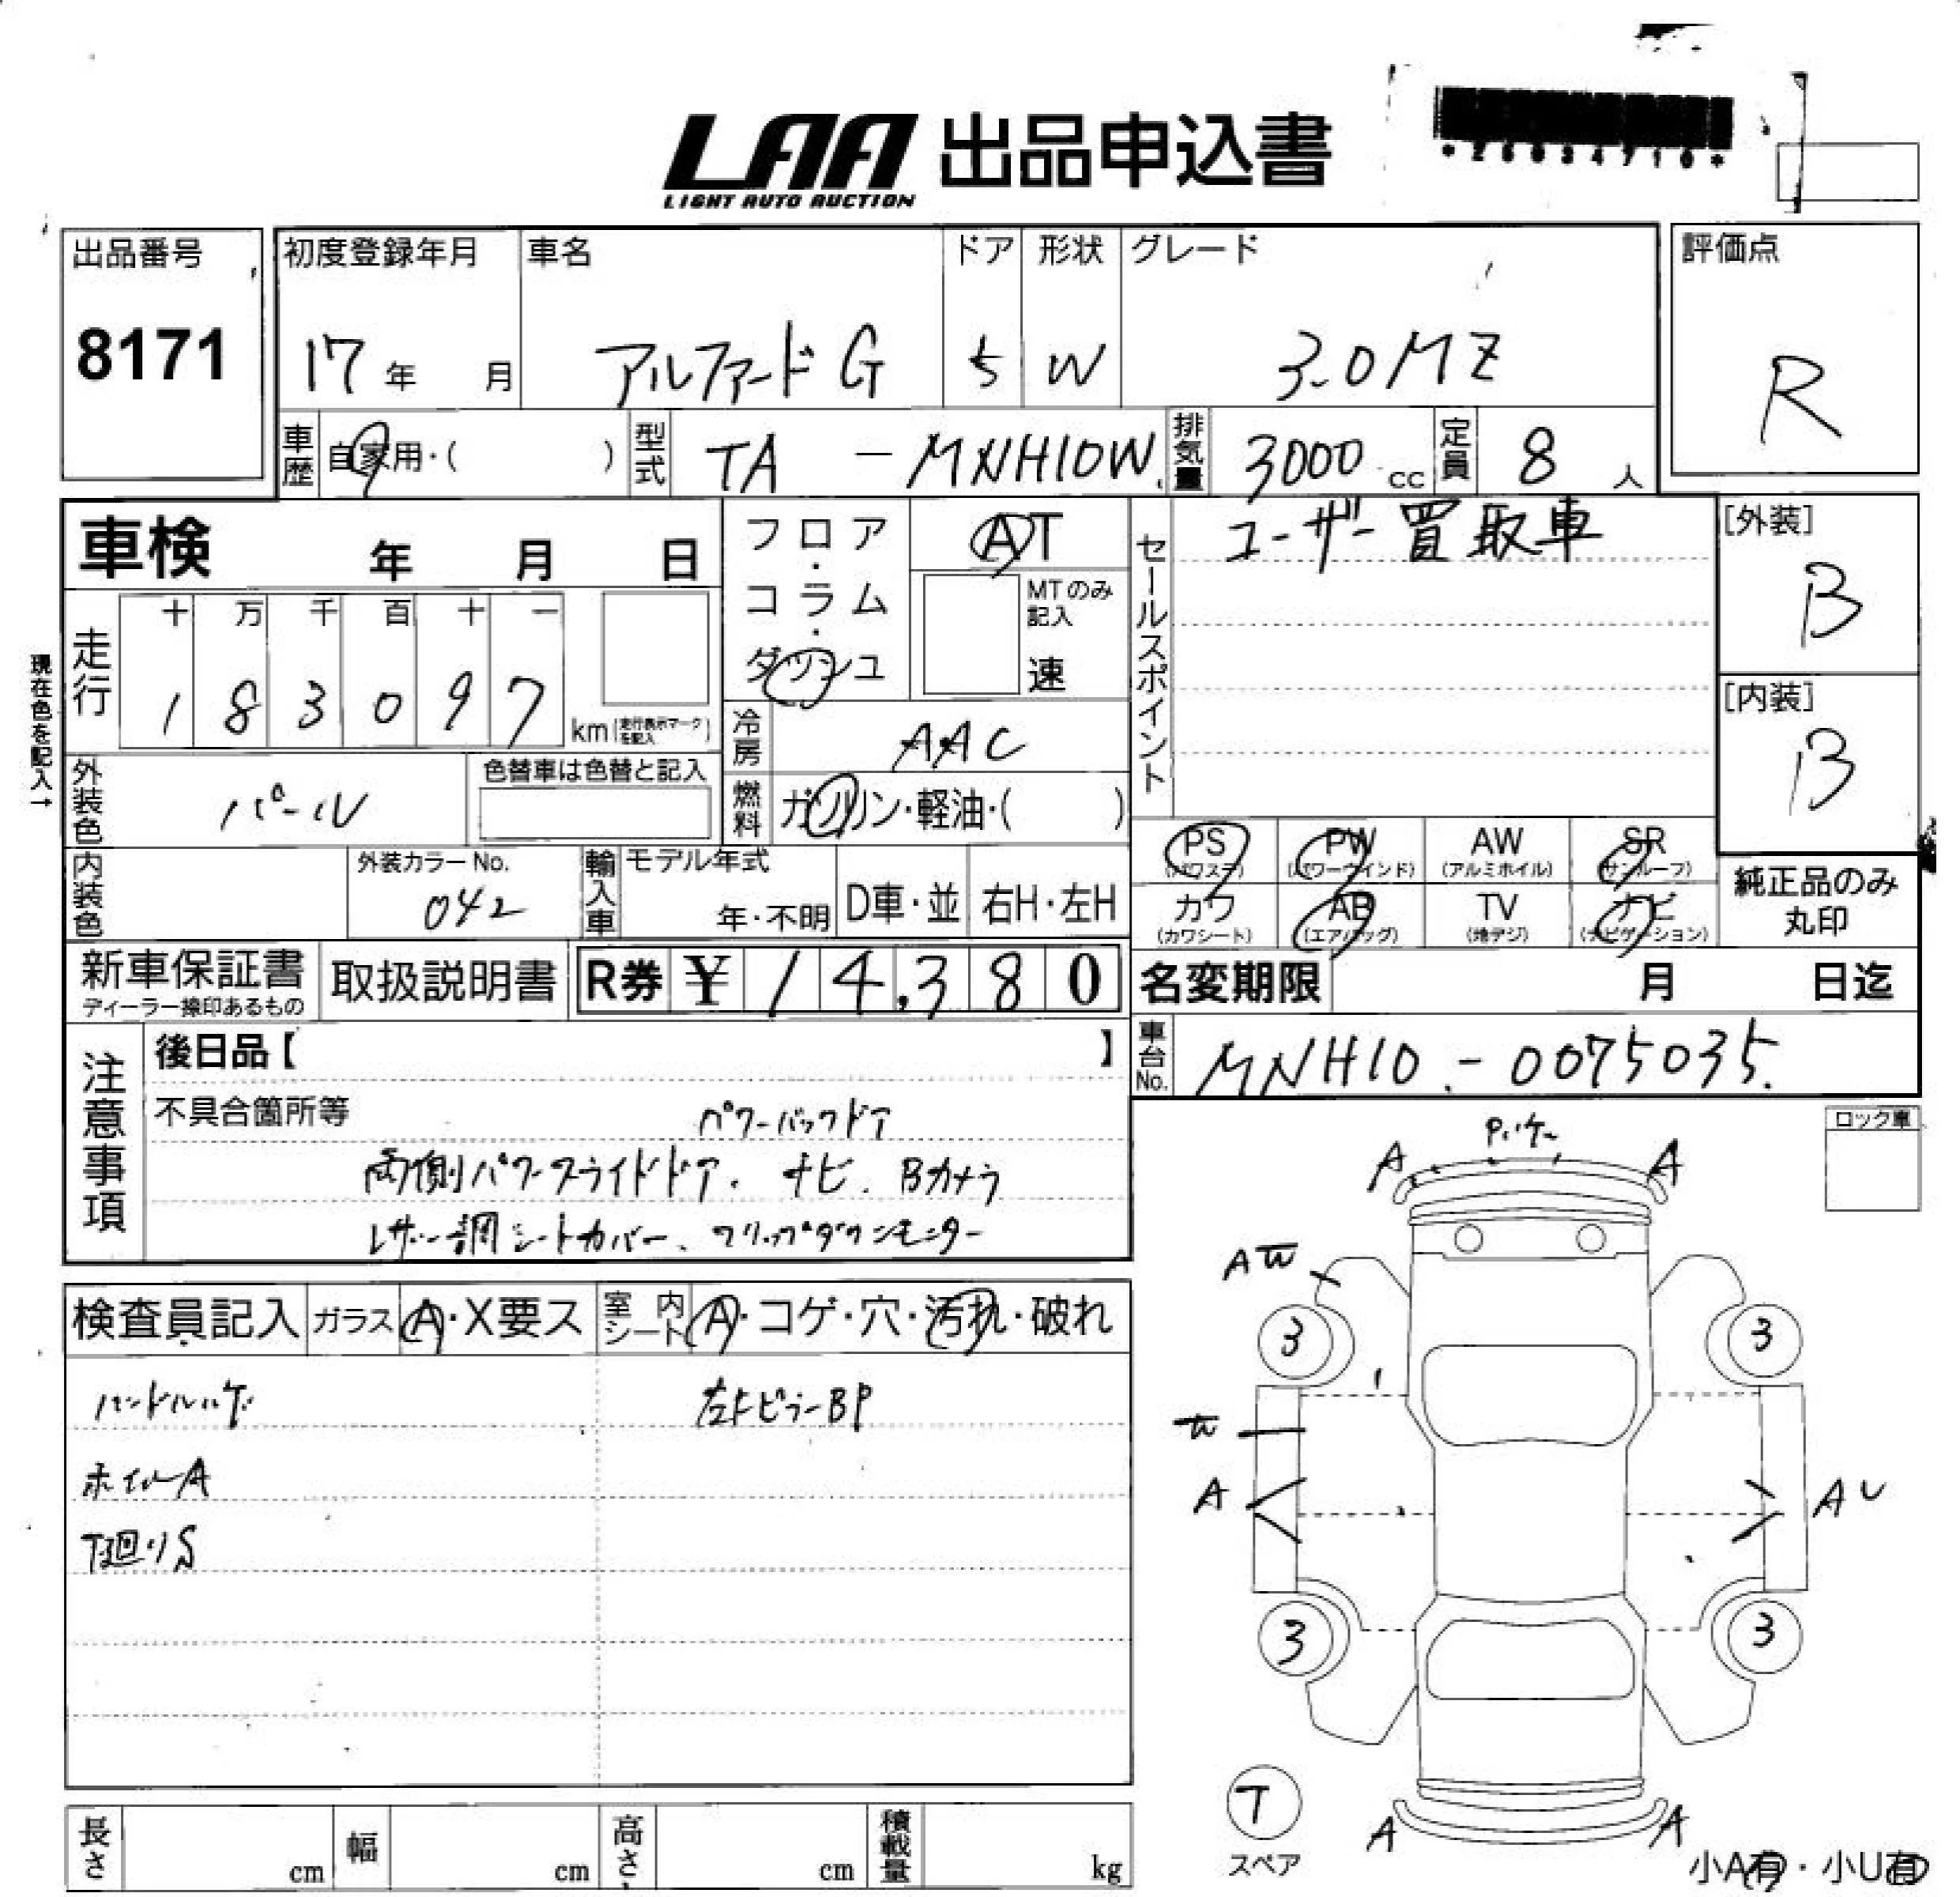 LAA 出品申込書
LIGHT AUTO AUCTION
*25034710*
出品番号 初度登録年月 車名 ドア 形状 グレード 評価点
8171 17年 月 アルファードG 5 W 3.0MZ R
車歴 自家用・( ) 型式 TA - MNH10W 排気量 3000 cc 定員 8 人
車検 年 月 日 フロア・コラム・ダッシュ AT セールスポイント ユーザー買取車 [外装]
MTのみ記入 B
速
走行 十 万 千 百 十 一 [内装]
1 8 3 0 9 7 km (走行表示マークを記入) 冷房 AAC B
現在色を記入→
外装色 パール 色替車は色替と記入 燃料 ガソリン・軽油・( )
PS (パワステ) PW (パワーウインド) AW (アルミホイル) SR (サンルーフ) 純正品のみ丸印
内装色 外装カラーNo. 042 輸入車 モデル年式 年・不明 D車・並 右H・左H
カワ (カワシート) AB (エアバッグ) TV (地デジ) ナビ (ナビゲーション)
新車保証書 取扱説明書 R券 ¥ 14,380 名変期限 月 日迄
ディーラー捺印あるもの
注意事項 後日品【 】 車台No. MNH10-0075035
不具合箇所等 パワーバックドア
両側パワースライドドア、ナビ、Bカメラ
レザー調シートカバー、フリップダウンモニター
ロック車
検査員記入 ガラス A・X要ス 室内シート A・コゲ・穴・汚れ・破れ
ハンドルハゲ 左Fピラ-BP
ホイルA
下廻りS
A A
AW
3 3
W
A AU
3 3
T
スペア
A A
小A有・小U有
長さ cm 幅 cm 高さ cm 積載量 kg